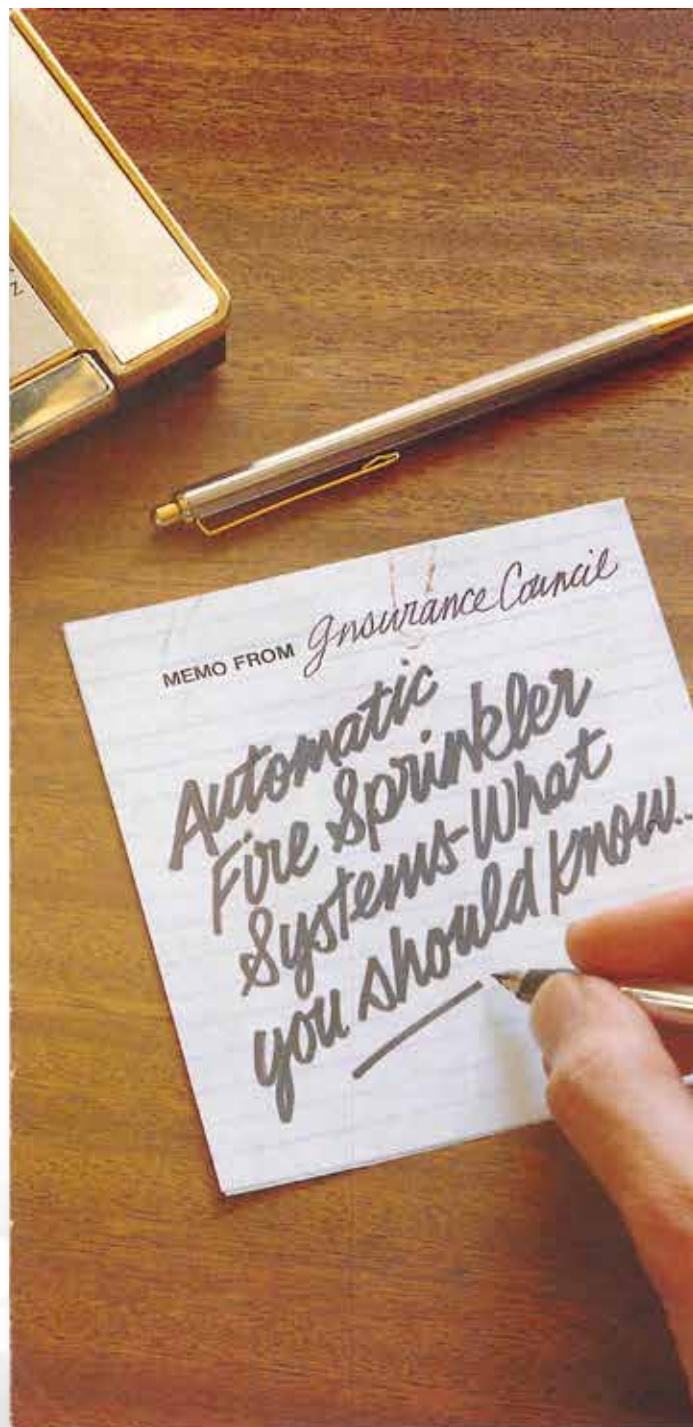 MEMO FROM Insurance Council
Automatic
Fire Sprinkler
Systems-What
you should know..